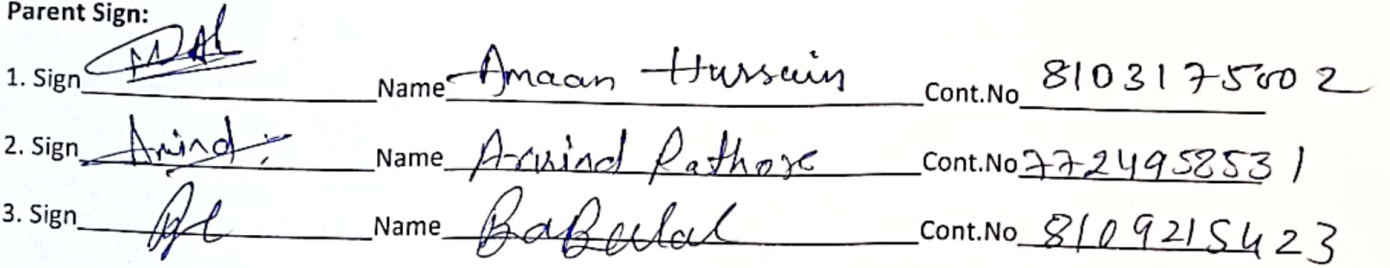 Parent Sign:
1. Sign Name Amaan Hussain Cont.No 8103175002
2. Sign Arind Name Arvind Rathore Cont.No 7724958531
3. Sign Name BaBulal Cont.No 8109215423